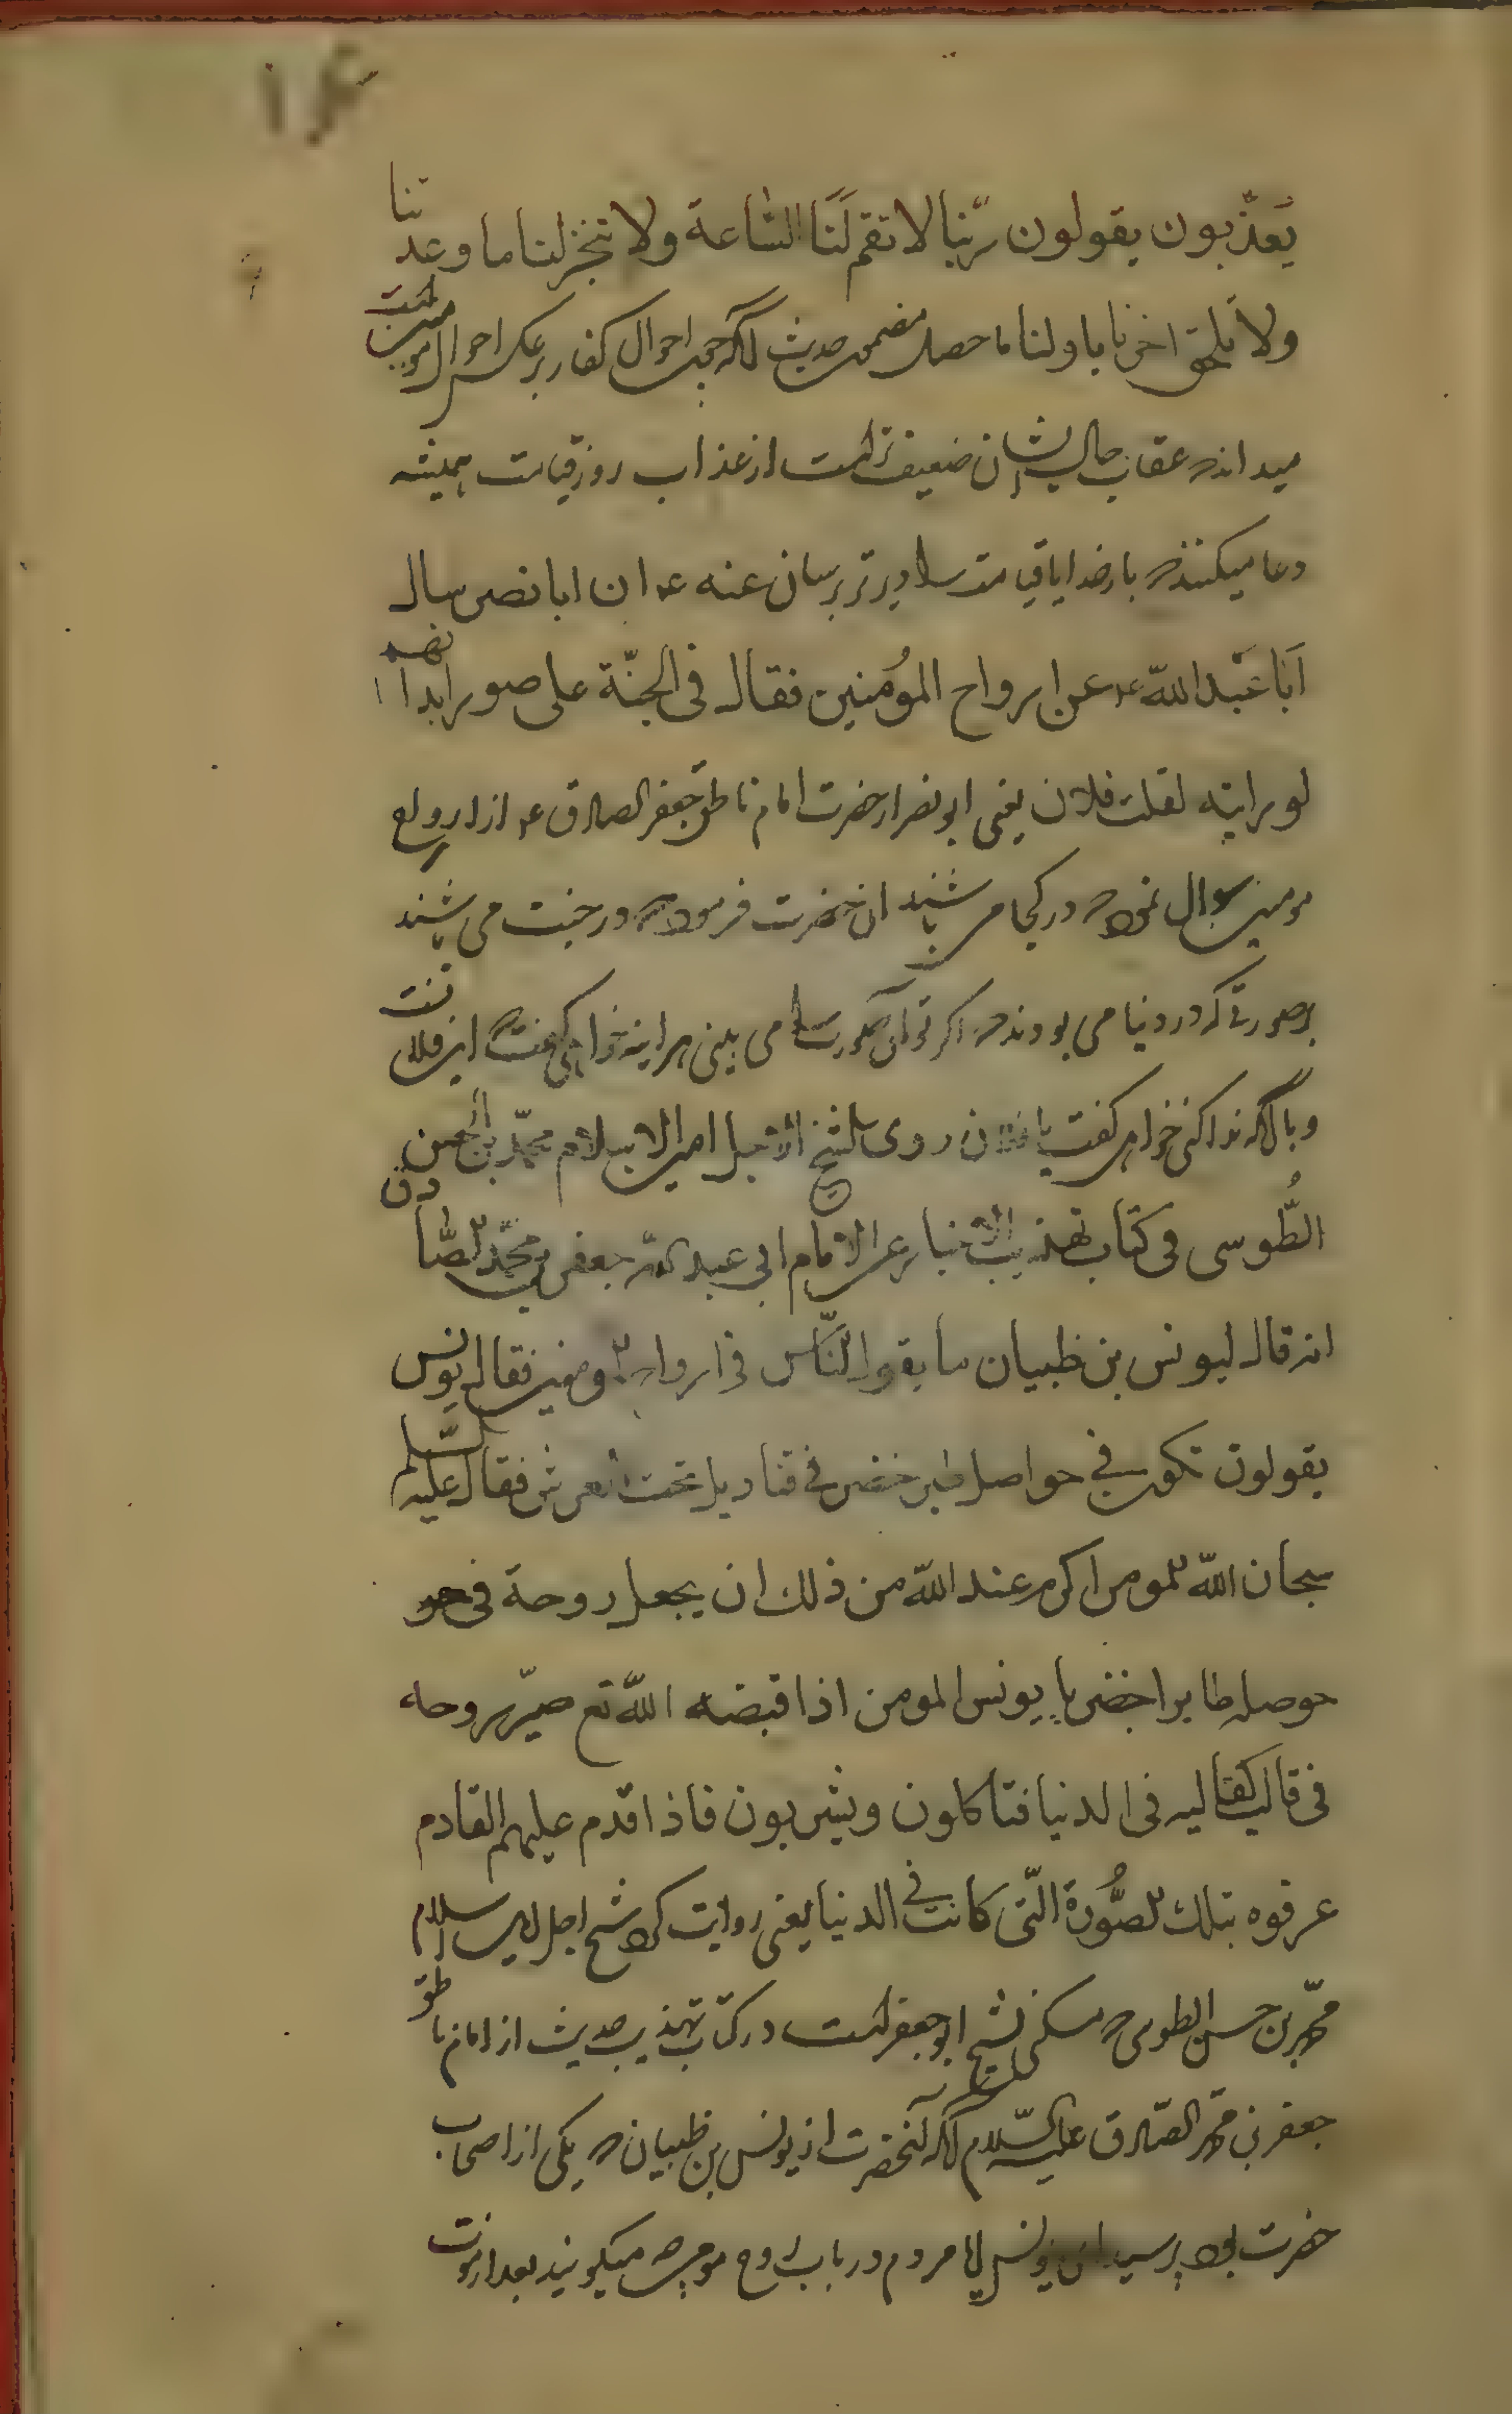 ۱۴
یعذّبون یقولون ربّنا لا تقم لَنا السّاعة ولا تنجز لنا ما وعدتنا
ولا تلحق اخرنا باولنا ما حصل مضمون حدیث آنکه چون احوال کفار برعکس احوال مومنین است
میدانند که عقاب حال ایشان ضعیف تر است از عذاب روز قیامت همیشه
دعا میکنند که بار خدایا قیامت را دیرتر برسان عنه ع ان ابا نصیر سال
اَبا عَبد اللّه ع عن ارواح المؤمنین فقال فی الجنّة علی صور ابدانهم
لو رایته لقلت فلان یعنی ابونصر از حضرت امام ناطق جعفر الصادق ع از ارواح
مومنین سوال نمود که در کجا می باشند ان حضرت فرمود که در جنت می باشند
بر صورتی که در دنیا می بودند که اگر تو آن صورت را می بینی هر اینه خواهی گفت که این فلان است
و یا آنکه ندا کنی خواهی گفت یا فلان روی الشیخ الاجل امین الاسلام محمّد بن الحسن
الطُّوسی فی کتاب تهذیب الاخبار عن الامام ابی عبد اللّه جعفر بن محمّد الصّادق
انه قال لیونس بن ظبیان ما یقول النّاس فی ارواح المومنین فقال یونس
یقولون تکون فی حواصل طیر خضر فی قنادیل تحت العرش فقال علیه السّلم
سبحان اللّه المومن اکرم عند اللّه من ذلك ان یجعل روحة فی حو
حوصله طایر اخضر یا یونس المومن اذا قبضه اللّه تع صیّر روحه
فی قالب کقالبه فی الدنیا فتاکلون ویشربون فاذا قدم علیهم القادم
عرفوه بتلك الصُّورة الّتی کانت فی الدنیا یعنی روایت کرد شیخ اجل امین الاسلام
محمّد بن حسن الطوسی که مسکن شیخ ابو جعفر است در کتاب تهذیب حدیث از امام ناطق
جعفر بن محمّد الصّادق علیه السّلام آنکه آنحضرت از یونس بن ظبیان که یکی از اصحاب
حضرت بود پرسید ای یونس ایا مردم در باب ارواح مومن چه میگویند بعد از موت